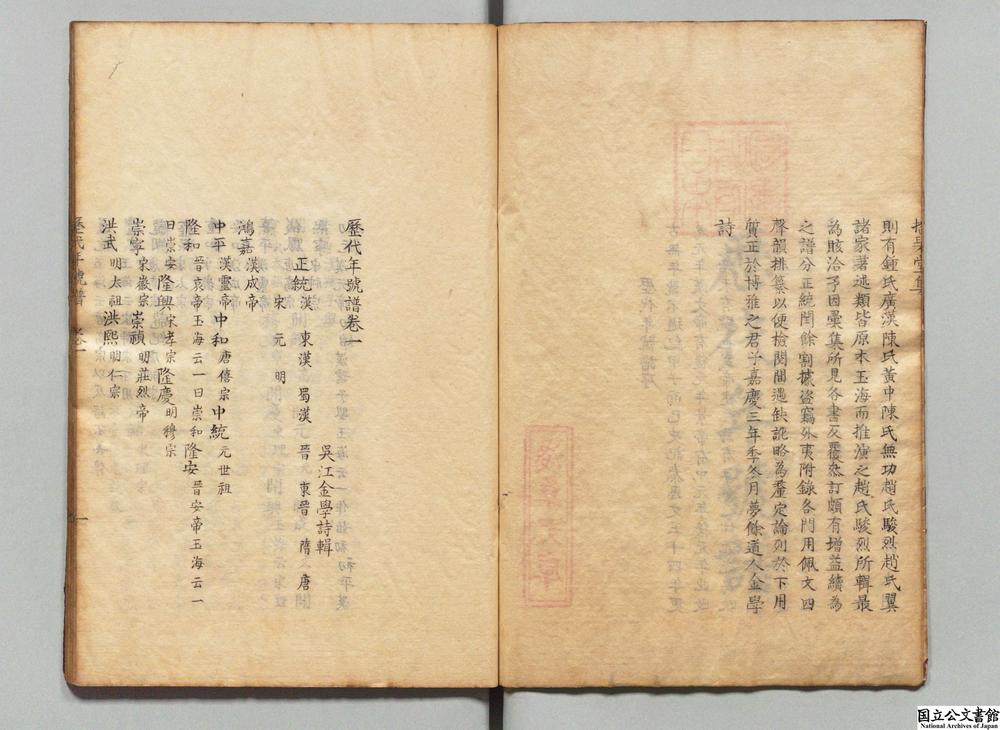 則有鍾氏廣漢陳氏黃中陳氏無功趙氏駿烈趙氏翼
諸家著述類皆原本玉海而推演之趙氏駿烈所輯最
為賅洽予因彙集所見各書反覆叅訂頗有增益續為
之譜分正統閏餘割據盜竊外夷附錄各門用佩文四
聲韻排纂以便檢閱間遇缺訛略為釐定論列於下用
質正於博雅之君子嘉慶三年季冬月夢餘道人金學
詩
歷代年號譜卷一
吳江金學詩輯
正統漢 東漢 蜀漢 晉 東晉 隋 唐
宋 元 明
鴻嘉漢成帝
中平漢靈帝中和唐僖宗中統元世祖
隆和晉哀帝玉海云一曰崇和隆安晉安帝玉海云一
曰崇安隆興宋孝宗隆慶明穆宗
崇寧宋徽宗崇禎明莊烈帝
洪武明太祖洪熙明仁宗
歷代年號譜 卷一 一
国立公文書館
National Archives of Japan